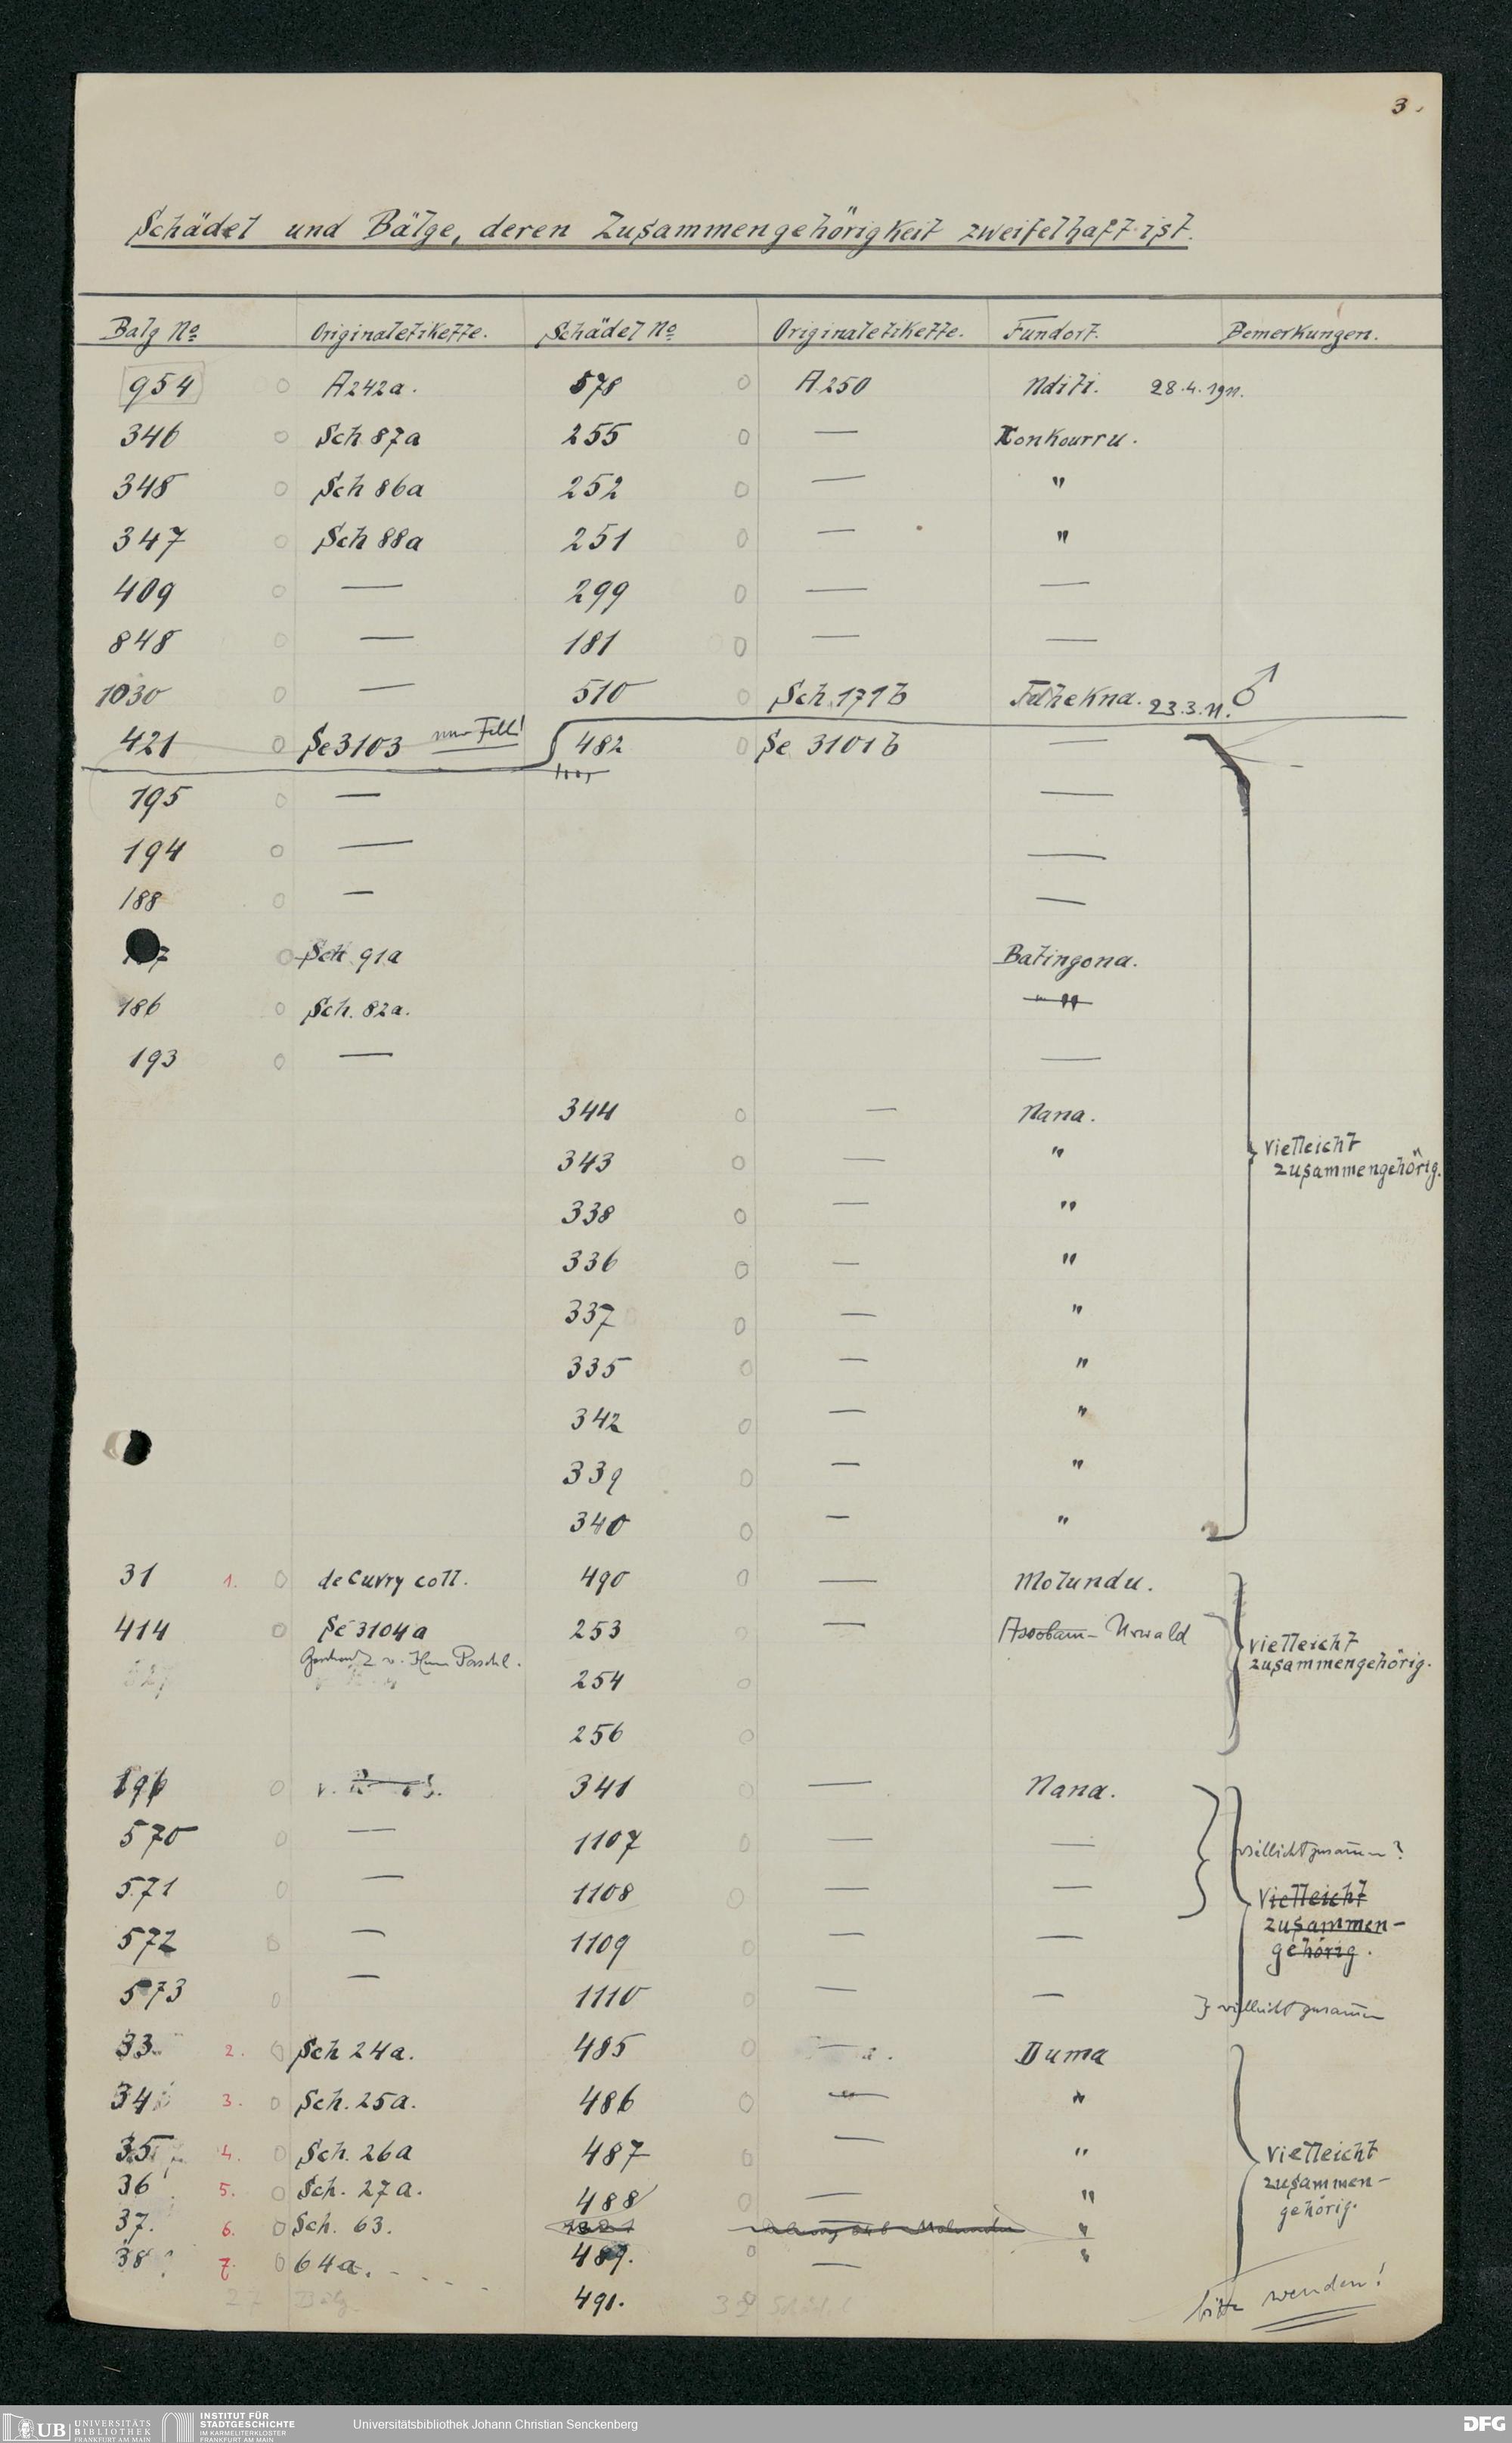 3.
Schädel und Bälge, deren Zusammengehörigkeit zweifelhaft ist.
Balg No Originaletikette. Schädel No Originaletikette. Fundort. Bemerkungen.
954 o A242a. 578 o A 250 Ndili. 28.4.1911.
346 o Sch 87a 255 o — Konkourru.
348 o Sch 86a 252 o — "
347 o Sch 88a 251 o — "
409 o — 299 o — —
848 o — 181 o — —
1030 o — 510 o Sch. 171b 23.3.11. ♂
421 o Se3103 nur Fell! 482 o Se 3101b —
195 o — —
194 o — —
188 o — —
7 o Sch 91a Batingona.
186 o Sch. 82a. "
193 o — —
344 o — Nana.
343 o — "
vielleicht
zusammengehörig.
338 o — "
336 o — "
337 o — "
335 o — "
342 o — "
339 o — "
340 o — "
31 1. o de Cuvry coll. 490 o — Molundu.
414 o Se 3104a 253 o — Assobam-Urwald
vielleicht
zusammengehörig.
v. Herrn Paschl.
254 o
256 o
196 o 341 o — Nana.
570 o — 1107 o — —
vielleicht zusamm ?
571 o — 1108 o — —
Vielleicht
zusammen-
gehörig.
572 o — 1109 o — —
573 o — 1110 o — —
} vielleicht zusamm
33 2. o Sch 24a. 485 o — Duma
34 3. o Sch. 25a. 486 o — "
35 4. o Sch. 26a 487 o — "
vielleicht
zusammen-
gehörig.
36 5. o Sch. 27a. 488 o — "
37. 6. o Sch. 63. "
38 7. o 64a. 489. o — "
27 Balg 491. 39 Schädel
bitte wenden!
UB UNIVERSITÄTS
BIBLIOTHEK
FRANKFURT AM MAIN
INSTITUT FÜR
STADTGESCHICHTE
IM KARMELITERKLOSTER
FRANKFURT AM MAIN
Universitätsbibliothek Johann Christian Senckenberg
DFG